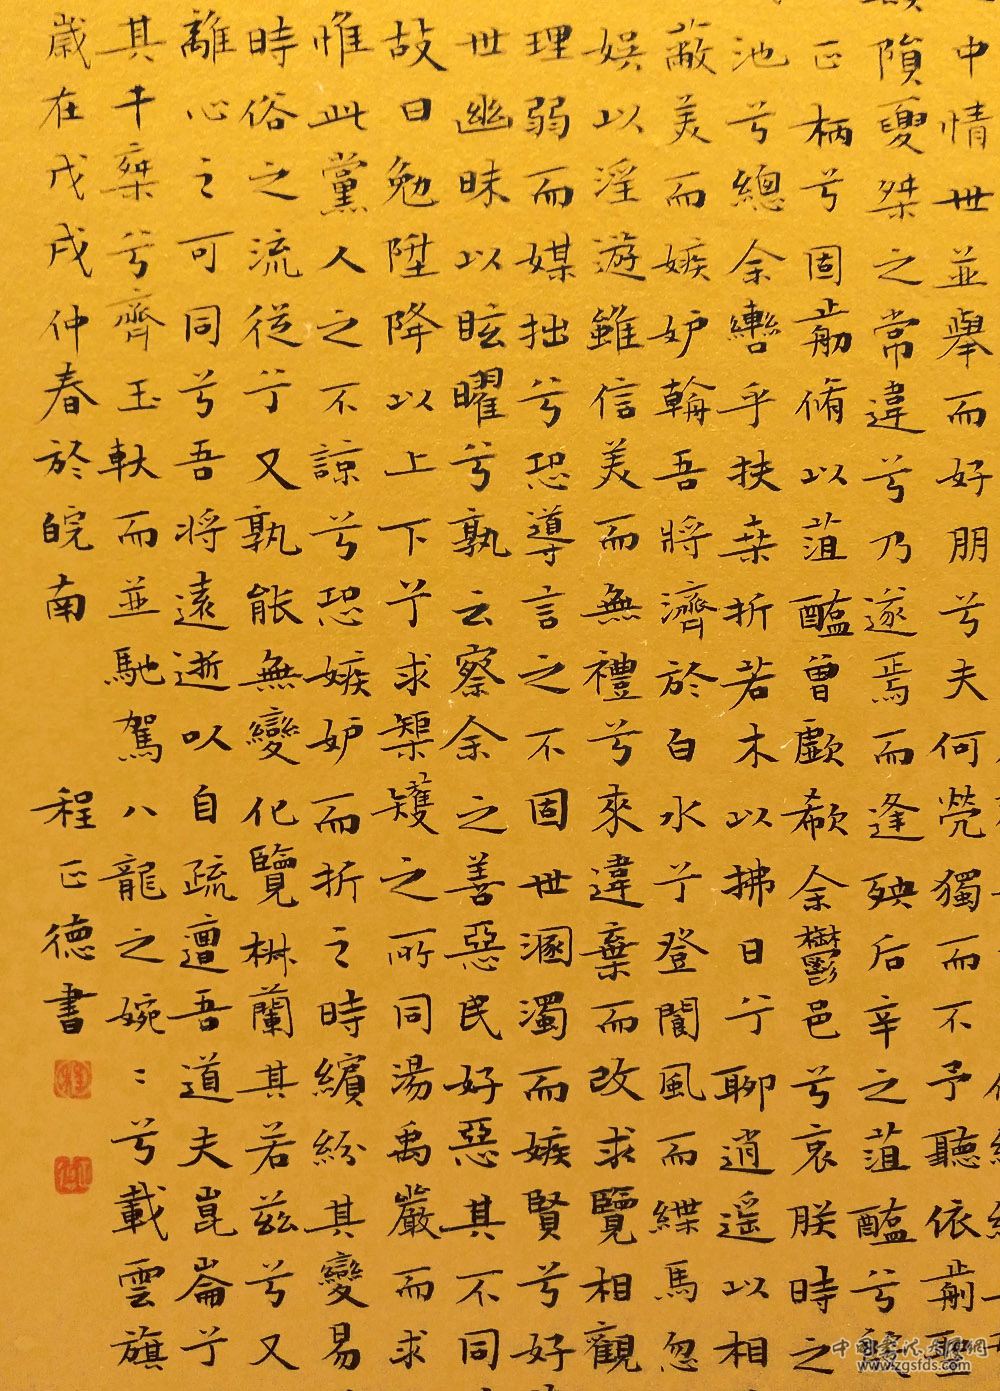 中情世並舉而好朋兮夫何煢獨而不予聽依前聖
隕夏桀之常違兮乃遂焉而逢殃后辛之菹醢兮
正柄兮固前脩以菹醢曾歔欷余鬱邑兮哀朕時之
池兮總余轡乎扶桑折若木以拂日兮聊逍遙以相
蔽美而嫉妒朝吾將濟於白水兮登閬風而緤馬忽
娛以淫遊雖信美而無禮兮來違棄而改求覽相觀
理弱而媒拙兮恐導言之不固世溷濁而嫉賢兮好
世幽昧以眩曜兮孰云察余之善惡民好惡其不同
故曰勉陞降以上下兮求榘矱之所同湯禹嚴而求
惟此黨人之不諒兮恐嫉妒而折之時繽紛其變易
時俗之流從兮又孰能無變化覽椒蘭其若茲兮又
離心之可同兮吾將遠逝以自疏邅吾道夫崑崙兮
其千乘兮齊玉軑而並馳駕八龍之婉〻兮載雲旗
歲在戊戌仲春於皖南 程正德書
中国书法大厦网
www.zgsfds.com